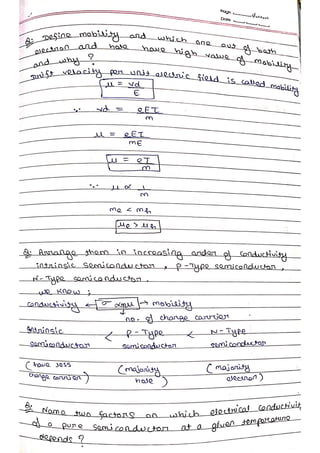 Page
Date
Q: Define mobility and which one out of both
electron and hole have high value of mobility
and why ?
Drift velocity per unit electric field is called mobility
μ = vd / E
∵ vd = eEτ / m
μ = eEτ / mE
μ = eτ / m
∵ μ ∝ 1 / m
me < mh
μe > μh
Q: Arrange them in increasing order of conductivity
intrinsic semiconductor , P-Type semiconductor ,
N-Type semiconductor .
we know ;
conductivity ← σ ∝ nμ → mobility
no. of charge carrier
Intrinsic < P-Type < N-Type
semiconductor semiconductor semiconductor
(have less (majority (majority
charge carrier) hole) electron)
Q: Name two factors on which electrical conductivity
of a pure semiconductor at a given temperature
depends ?